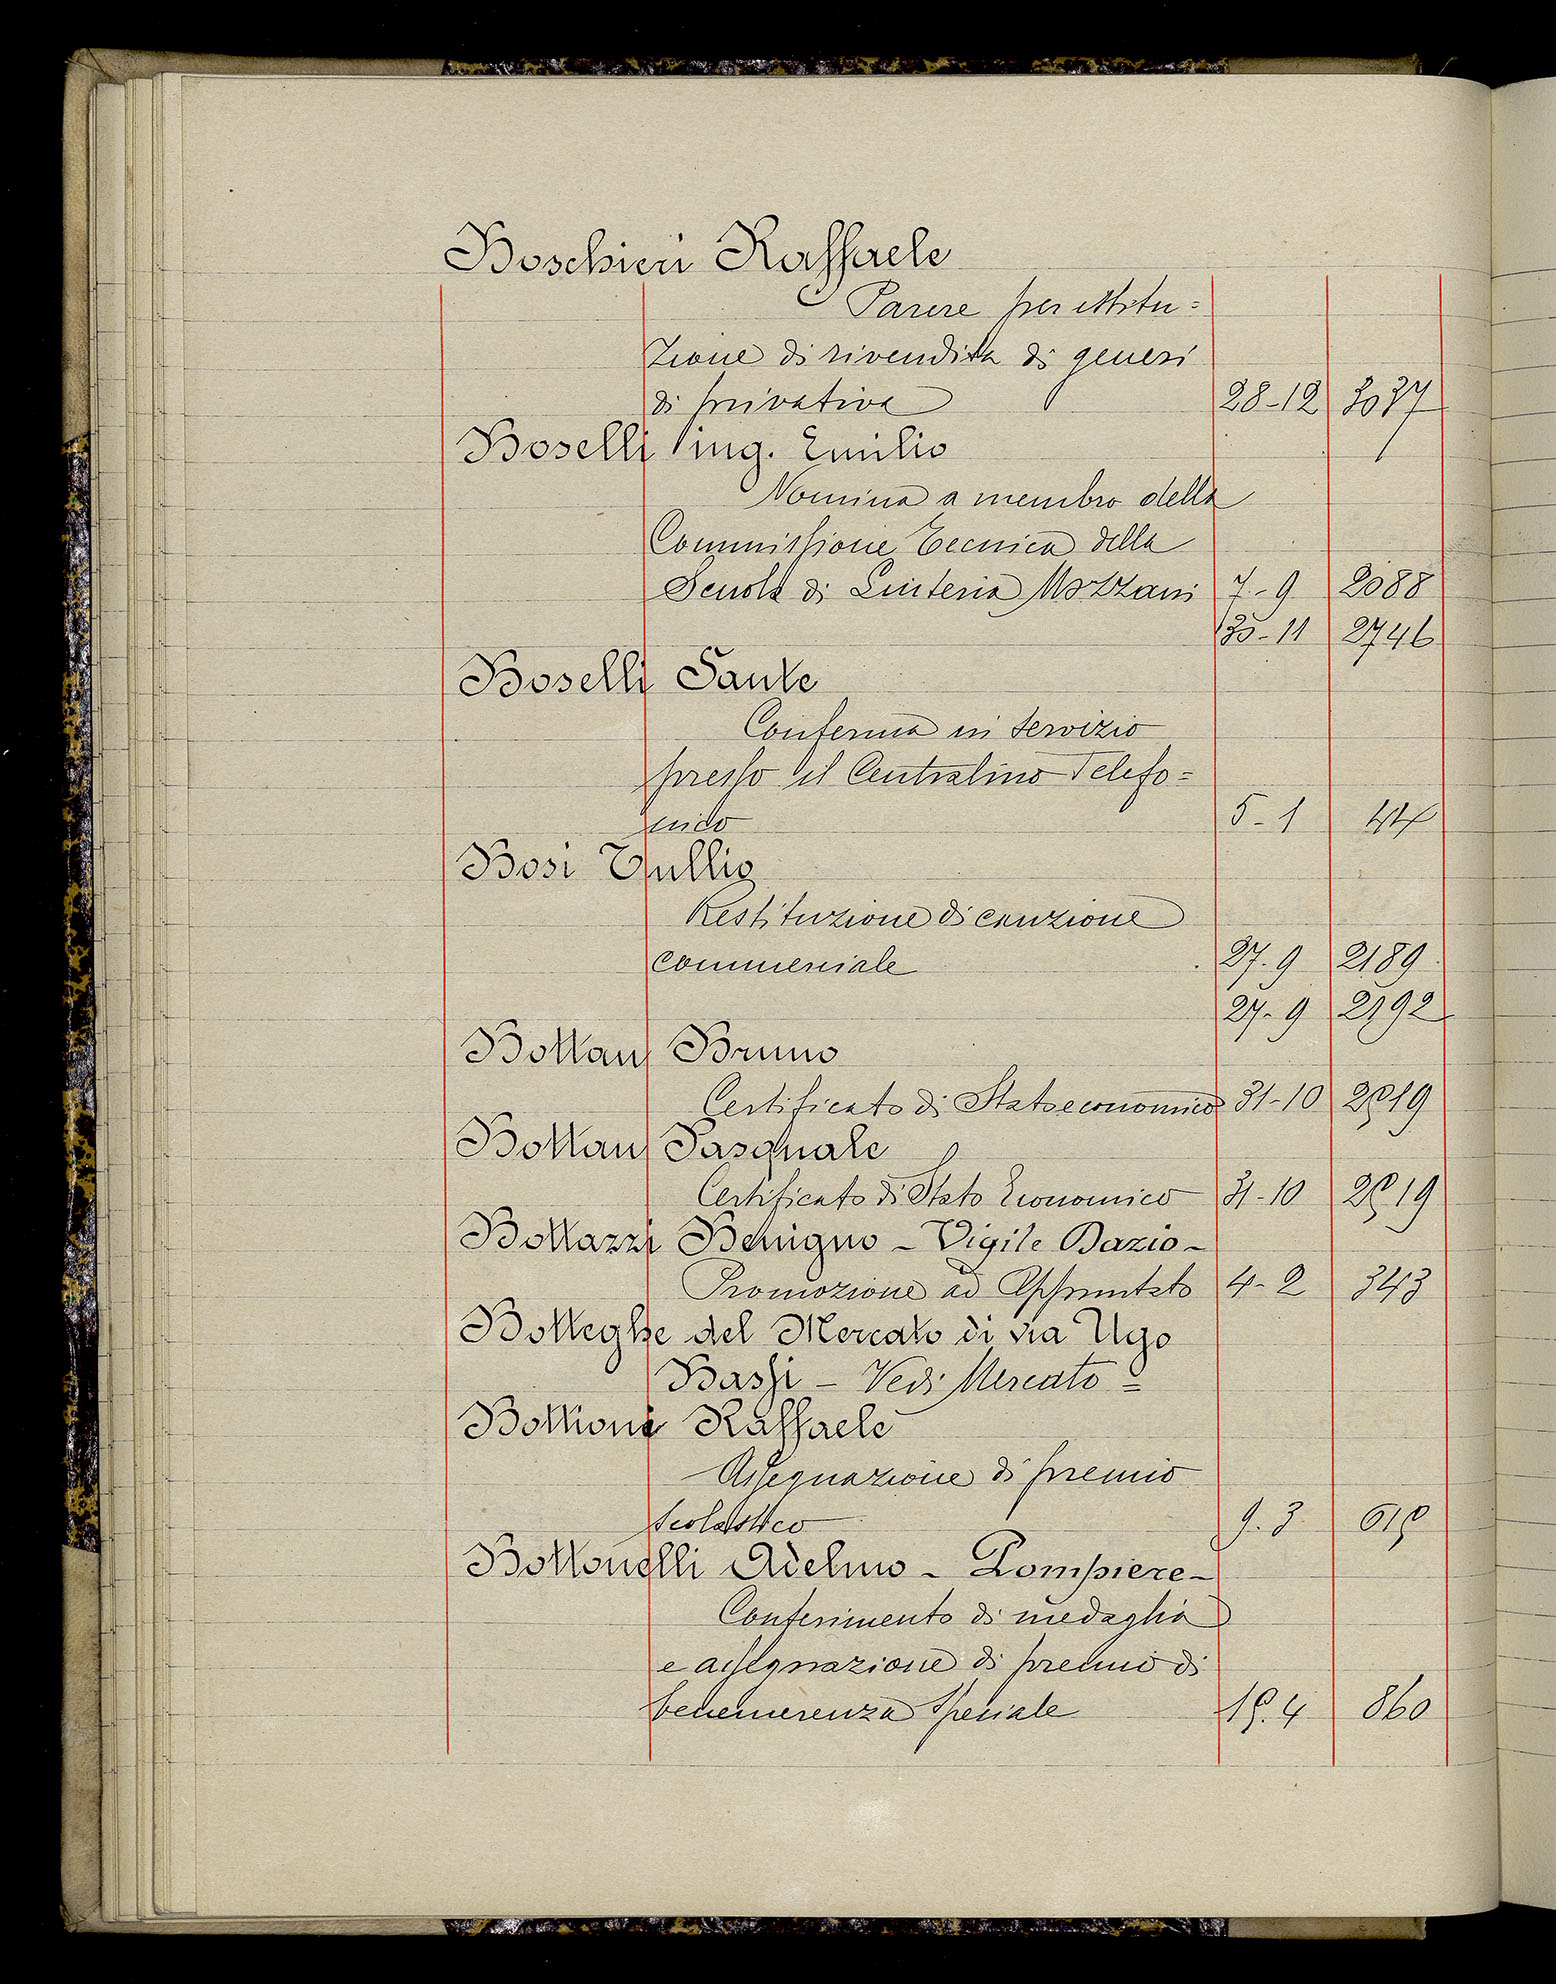 Boschieri Raffaele
Parere per istitu=
zione di rivendita di generi
di privativa 28-12 3037
Boselli ing. Emilio
Nomina a membro della
Commissione Tecnica della
Scuola di Liuteria Mozzani 7-9 2088
30-11 2746
Boselli Sante
Conferma in servizio
presso il Centralino Telefo=
nico 5-1 44
Bosi Tullio
Restituzione di cauzione
commerciale 27-9 2189
27-9 2192
Bottau Bruno
Certificato di Stato economico 31-10 2519
Bottau Pasquale
Certificato di Stato Economico 31-10 2519
Bottazzi Benigno - Vigile Dazio -
Promozione ad Appuntato 4-2 343
Botteghe del Mercato di via Ugo
Bassi - Vedi Mercato =
Bottioni Raffaele
Assegnazione di premio
scolastico 9.3 615
Bottonelli Adelmo - Pompiere -
Conferimento di medaglia
e assegnazione di premio di
benemerenza speciale 15.4 860